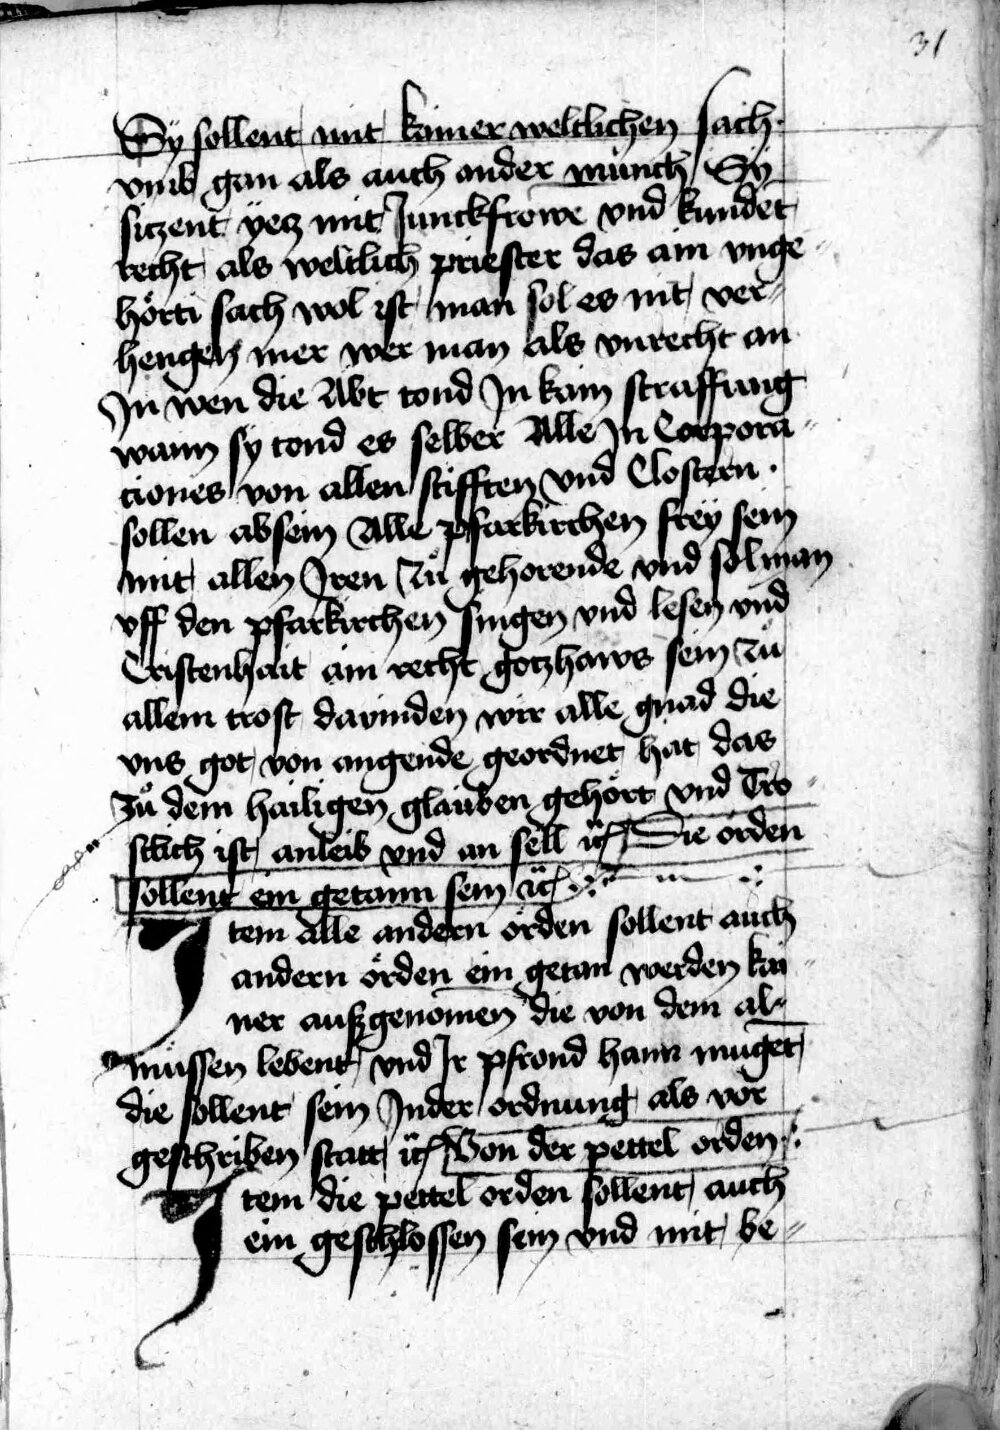 31
Sÿ sollent mit kainer weltlichen sach·
vmb gan als auch ander münch Sÿ
siczent ÿecz mit Junckfrowe vnd kundet
recht als weltlich priester das ain vnge„
hörti sach wol ist man sol es nit ver„
hengen mer wer man als vnrecht an
In wen die Abt tond In kain straffung
wann sÿ tond es selber Alle In Corpora„
tiones von allen stifften vnd Clostern ·
sollen absein Alle pfarkirchen freÿ sein
mit allen Iren Zů gehorende vnd sol man
vff den pfarkirchen singen vnd lesen vnd
Cristenhait ain recht gotzhaws sein Zů
allem trost darinden wir alle gnad die
vns got von angende geordnet hat das
Zů dem hailigen glauben gehört vnd Tro„
stlich ist an leib vnd an sell ꝛc Die örden
sollent ein getann sein ꝛc
Item Alle andern örden sollent auch
andern örden ein getan werden kai„
ner außgenomen die von dem al„
müssen lebent vnd Ir pfrond hann muget
die sollent sein In der ordnung als vor
geschriben statt ꝛc Von der pettel orden
Item die pettel orden sollent auch
ein geschlossen sein vnd mit be„